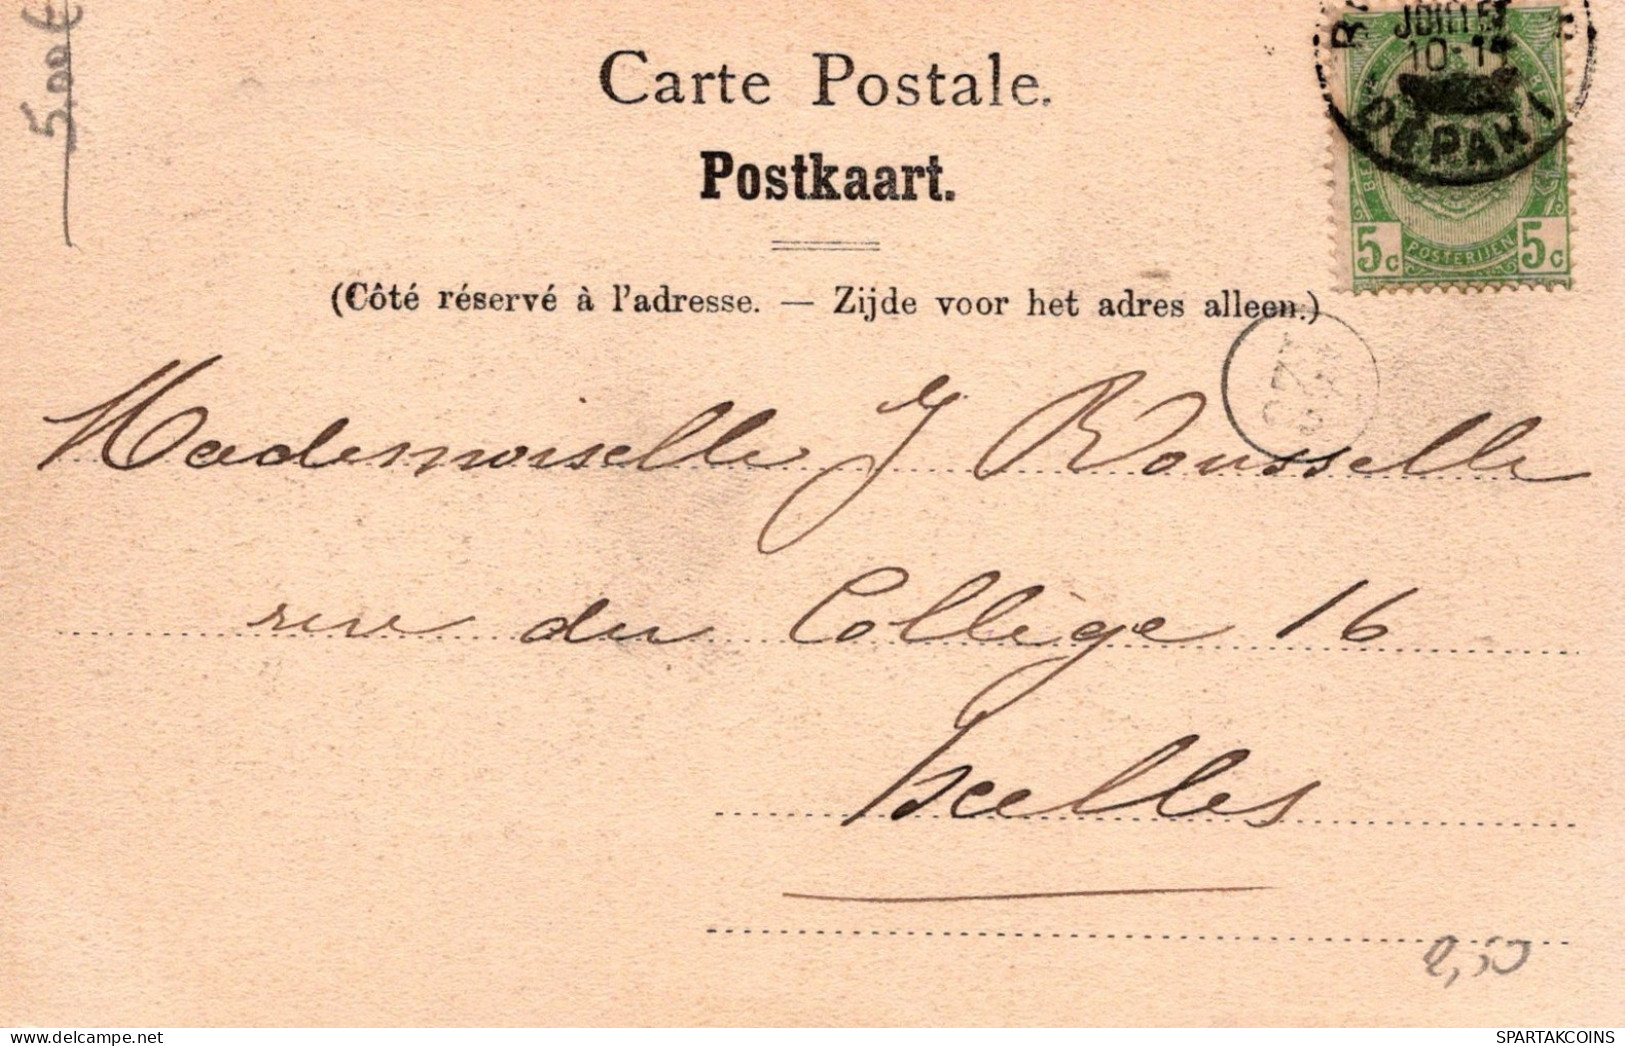 5.00€
Carte Postale.
Postkaart.
(Côté réservé à l'adresse. — Zijde voor het adres alleen.)
JUILLET
10-11
DEPART
5c POSTERIJEN 5c
Mademoiselle J Rousselle
rue du Collège 16
Ixelles
2,50
www.delcampe.net
SPARTAKCOINS